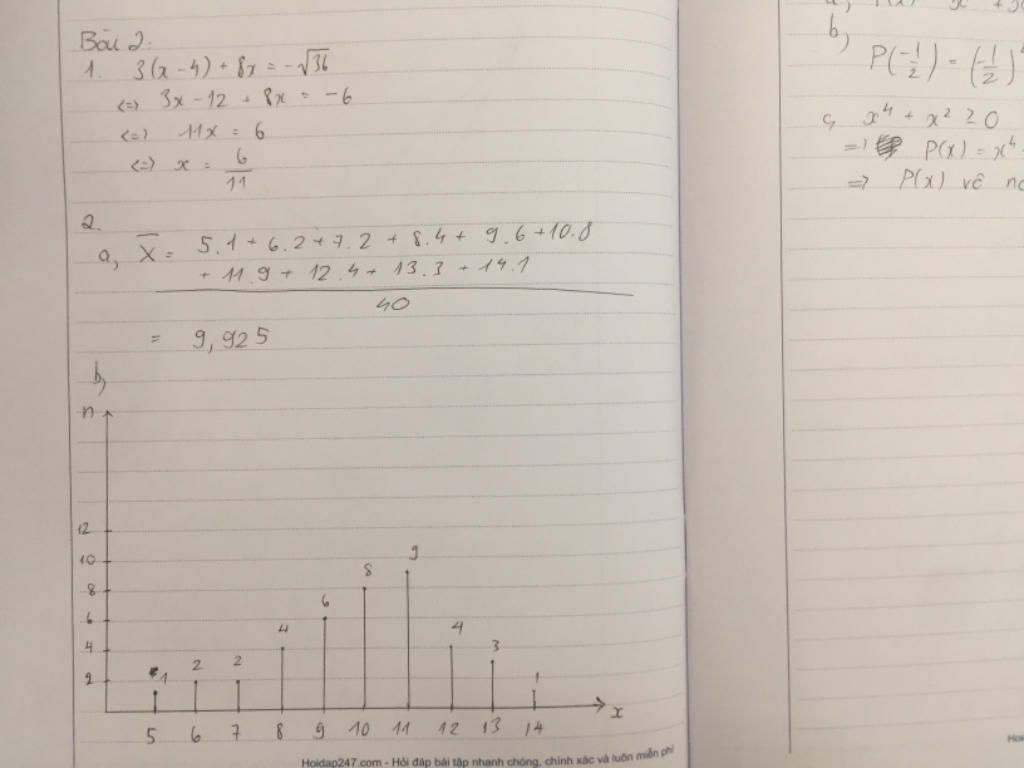 Bài 2:
1. 3(x - 4) + 8x = -√36
<=> 3x - 12 + 8x = -6
<=> 11x = 6
<=> x = 6/11
2.
a, X̅ = 5.1 + 6.2 + 7.2 + 8.4 + 9.6 + 10.8
+ 11.9 + 12.4 + 13.3 + 14.1
40
= 9,925
b,
n
12
10
8
6
4
2
1 2 2 4 6 8 9 4 3 1
5 6 7 8 9 10 11 12 13 14 x
Hoidap247.com - Hỏi đáp bài tập nhanh chóng, chính xác và luôn miễn phí
b,
P(-1/2) = (-1/2)
c, x⁴ + x² ≥ 0
=> P(x) = x⁴
=> P(x) vô